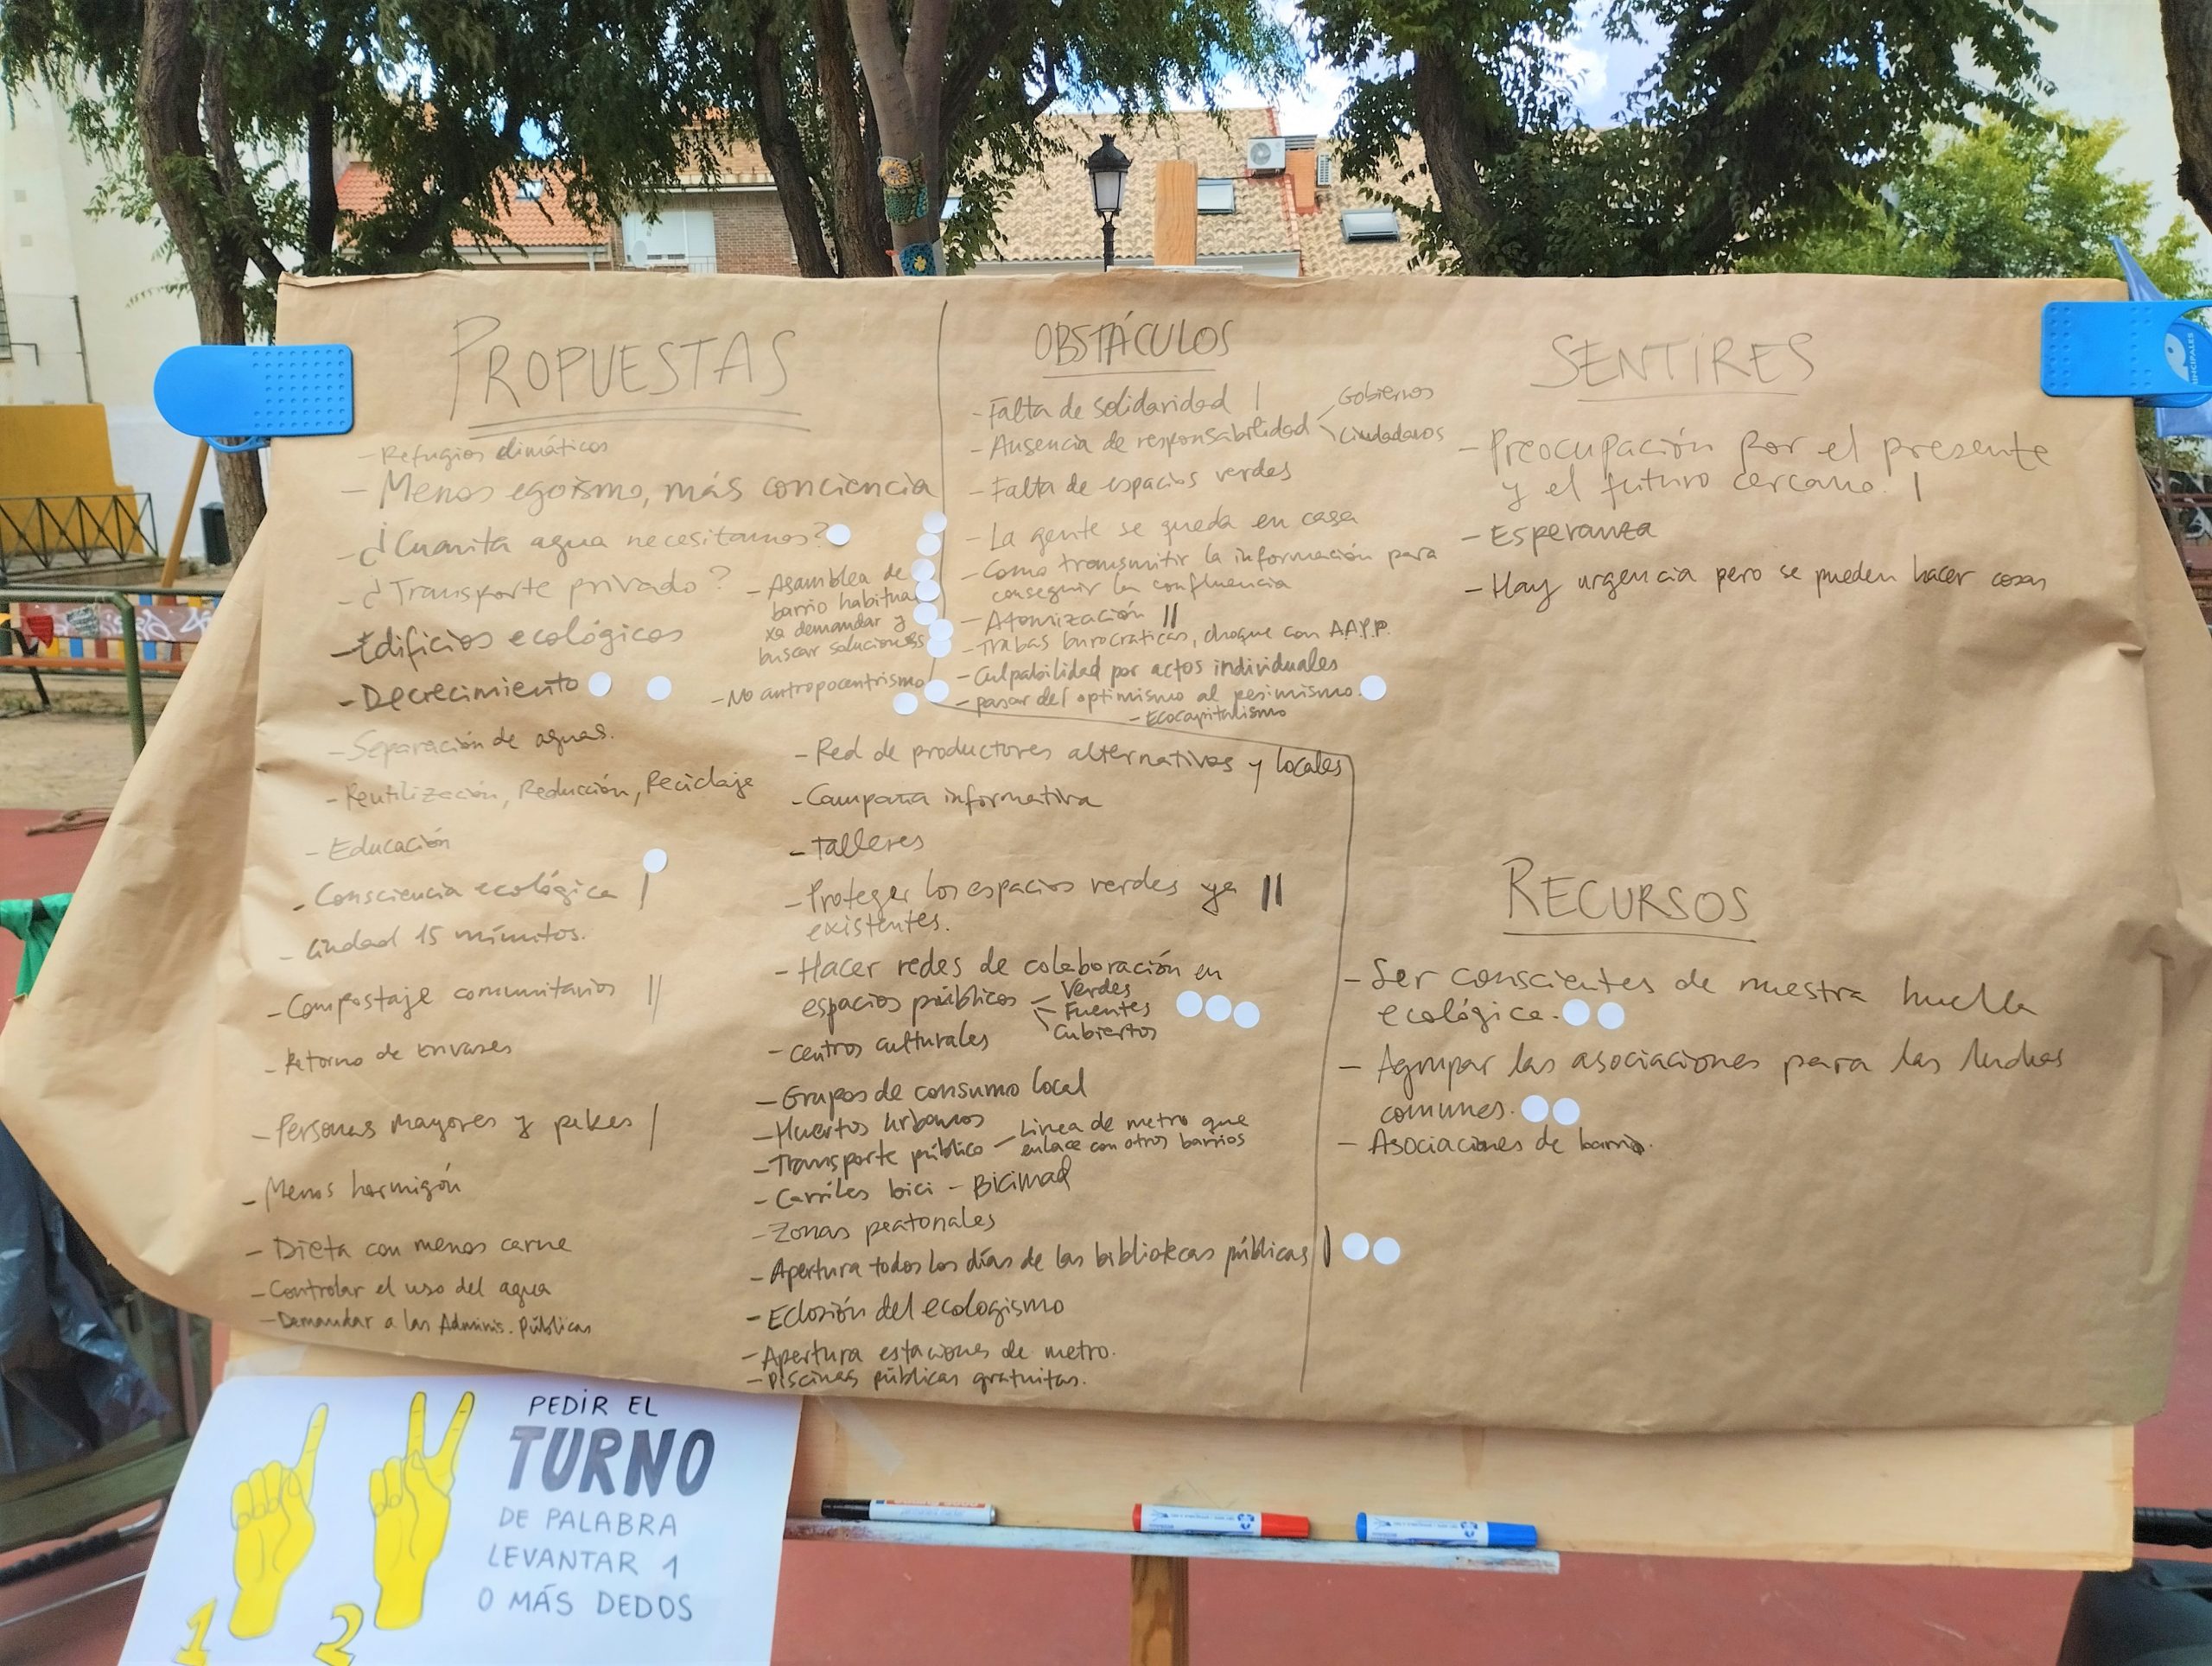 PROPUESTAS
- Refugios climáticos
- Menos egoísmo, más conciencia
- ¿Cuánta agua necesitamos?
- ¿Transporte privado?
- Edificios ecológicos
- Decrecimiento
- Asamblea de
barrio habitual
xa demandar y
buscar soluciones
- No antropocentrismo
- Separación de aguas.
- Reutilización, Reducción, Reciclaje
- Educación
- Consciencia ecológica |
- Ciudad 15 minutos.
- Compostaje comunitarios ||
- Retorno de envases
- Personas mayores y pekes |
- Menos hormigón
- Dieta con menos carne
- Controlar el uso del agua
- Demandar a las Adminis. Públicas
- Red de productores alternativos y locales
- Campaña informativa
- Talleres
- Proteger los espacios verdes ya ||
existentes.
- Hacer redes de colaboración en
espacios públicos - Verdes
- Fuentes
Cubiertos
- Centros culturales
- Grupos de consumo local
- Huertos urbanos
- Transporte público - Linea de metro que
enlace con otros barrios
- Carriles bici - BICIMAD
- Zonas peatonales
- Apertura todos los días de las bibliotecas públicas |
- Eclosión del ecologismo
- Apertura estaciones de metro.
- Piscinas públicas gratuitas.
OBSTÁCULOS
- Falta de solidaridad |
- Ausencia de responsabilidad
Gobiernos
Ciudadanos
- Falta de espacios verdes
- La gente se queda en casa
- Como transmitir la información para
conseguir la confluencia
- Atomización ||
- Trabas burocraticas, choque con AA.PP.
- Culpabilidad por actos individuales
- pasar del optimismo al pesimismo.
- Ecocapitalismo
SENTIRES
- Preocupación por el presente
y el futuro cercano. |
- Esperanza
- Hay urgencia pero se pueden hacer cosas
RECURSOS
- Ser conscientes de nuestra huella
ecológica.
- Agrupar las asociaciones para las luchas
comunes.
- Asociaciones de barrio.
PEDIR EL
TURNO
DE PALABRA
LEVANTAR 1
O MÁS DEDOS
1
2